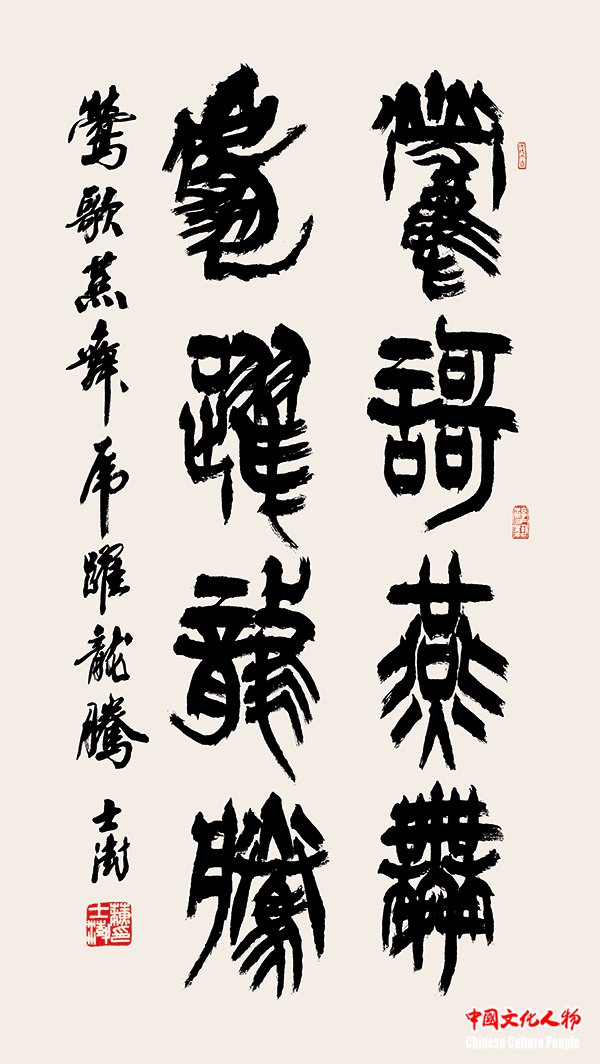 鶯謌燕舞
虎躍龍騰
鶯歌燕舞虎躍龍騰 士澍
蘇印士澍
中國文化人物
Chinese Culture People